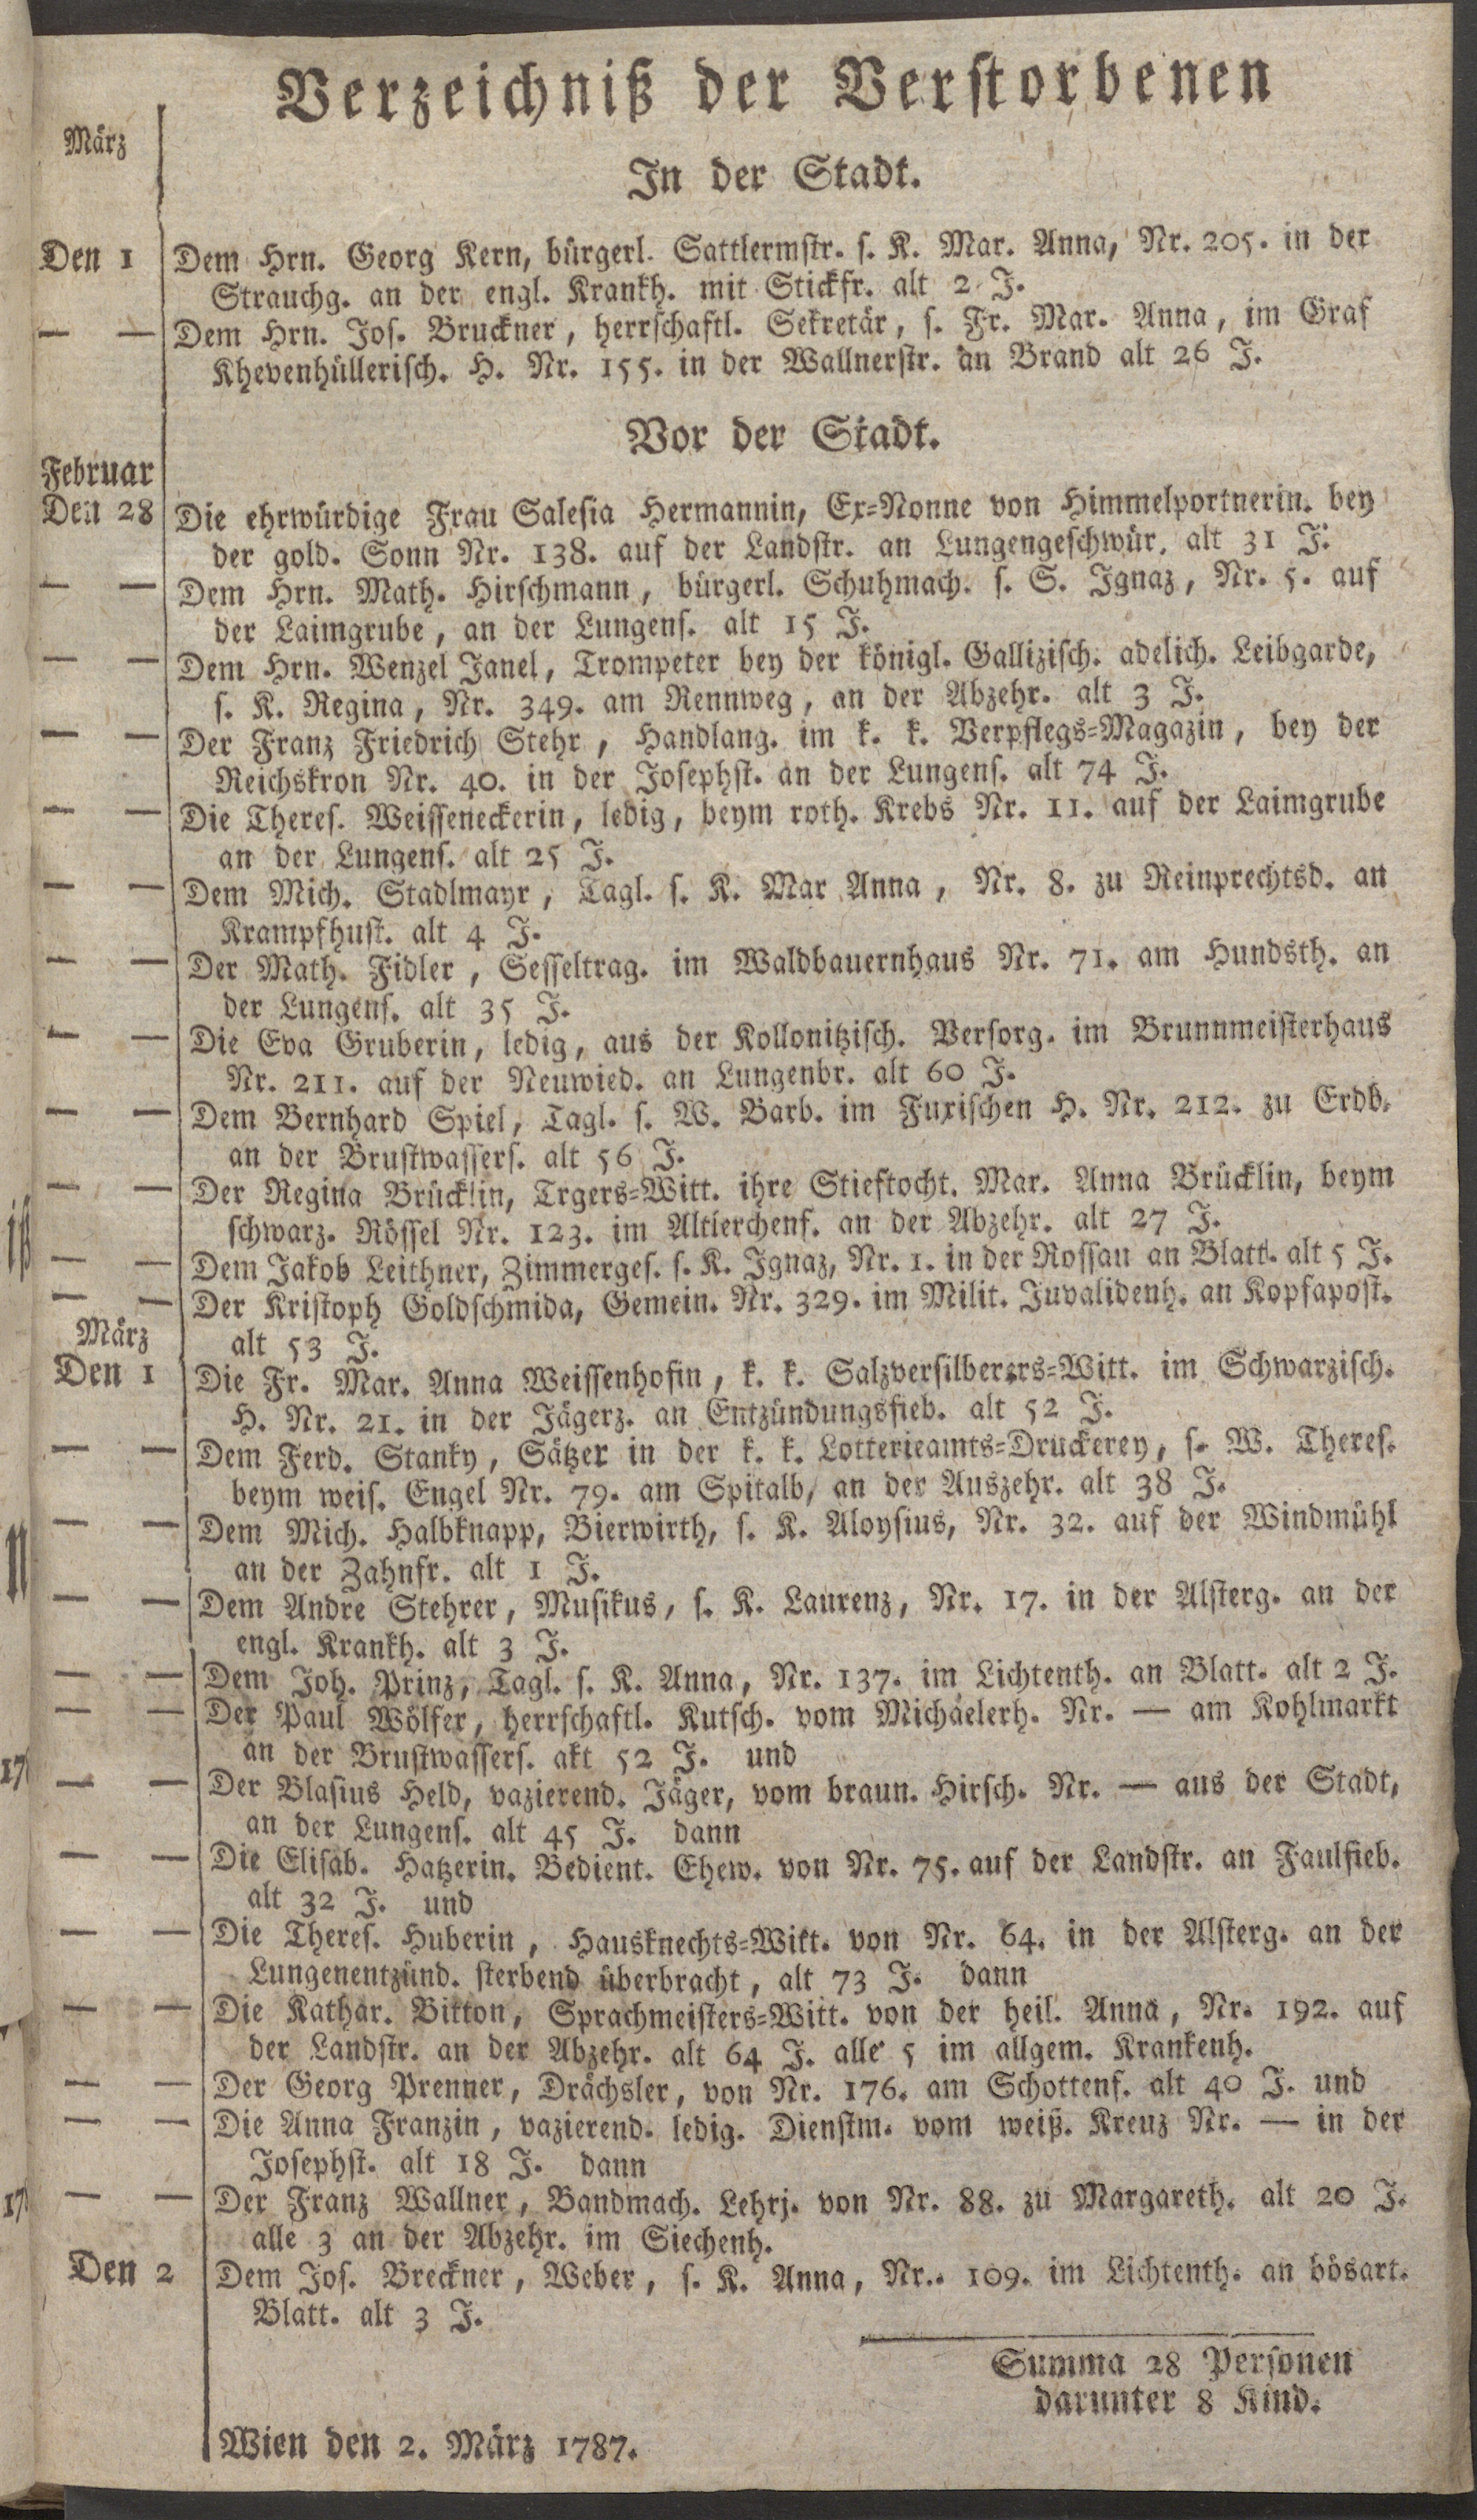 Verzeichniß der Verstorbenen
März
In der Stadt.
Den 1 Dem Hrn. Georg Kern, bürgerl. Sattlermstr. s. K. Mar. Anna, Nr. 205. in der
Strauchg. an der engl. Krankh. mit Stickfr. alt 2 J.
— — Dem Hrn. Jos. Bruckner, herrschaftl. Sekretär, s. Fr. Mar. Anna, im Graf
Khevenhüllerisch. H. Nr. 155. in der Wallnerstr. an Brand alt 26 J.
Vor der Stadt.
Februar
Den 28 Die ehrwürdige Frau Salesia Hermannin, Ex=Nonne von Himmelportnerin. bey
der gold. Sonn Nr. 138. auf der Landstr. an Lungengeschwür. alt 31 J.
— — Dem Hrn. Math. Hirschmann, bürgerl. Schuhmach. s. S. Ignaz, Nr. 5. auf
der Laimgrube, an der Lungens. alt 15 J.
— — Dem Hrn. Wenzel Janel, Trompeter bey der königl. Gallizisch. adelich. Leibgarde,
s. K. Regina, Nr. 349. am Rennweg, an der Abzehr. alt 3 J.
— — Der Franz Friedrich Stehr, Handlang. im k. k. Verpflegs=Magazin, bey der
Reichskron Nr. 40. in der Josephst. an der Lungens. alt 74 J.
— — Die Theres. Weisseneckerin, ledig, beym roth. Krebs Nr. 11. auf der Laimgrube
an der Lungens. alt 25 J.
— — Dem Mich. Stadlmayr, Tagl. s. K. Mar Anna, Nr. 8. zu Reinprechtsd. an
Krampfhust. alt 4 J.
— — Der Math. Fidler, Sesseltrag. im Waldbauernhaus Nr. 71. am Hundsth. an
der Lungens. alt 35 J.
— — Die Eva Gruberin, ledig, aus der Kollonitzisch. Versorg. im Brunnmeisterhaus
Nr. 211. auf der Neuwied. an Lungenbr. alt 60 J.
— — Dem Bernhard Spiel, Tagl. s. W. Barb. im Fuxischen H. Nr. 212. zu Erdb.
an der Brustwassers. alt 56 J.
— — Der Regina Brücklin, Trgers=Witt. ihre Stieftocht. Mar. Anna Brücklin, beym
schwarz. Rössel Nr. 123. im Altlerchenf. an der Abzehr. alt 27 J.
— — Dem Jakob Leithner, Zimmerges. s. K. Ignaz, Nr. 1. in der Rossau an Blatt. alt 5 J.
— — Der Kristoph Goldschmida, Gemein. Nr. 329. im Milit. Juvalidenh. an Kopfapost.
alt 53 J.
März
Den 1 Die Fr. Mar. Anna Weissenhofin, k. k. Salzversilberers=Witt. im Schwarzisch.
H. Nr. 21. in der Jägerz. an Entzündungsfieb. alt 52 J.
— — Dem Ferd. Stanky, Sätzer in der k. k. Lotterieamts=Druckerey, s. W. Theres.
beym weis. Engel Nr. 79. am Spitalb, an der Auszehr. alt 38 J.
— — Dem Mich. Halbknapp, Bierwirth, s. K. Aloysius, Nr. 32. auf der Windmühl
an der Zahnfr. alt 1 J.
— — Dem Andre Stehrer, Musikus, s. K. Laurenz, Nr. 17. in der Alsterg. an der
engl. Krankh. alt 3 J.
— — Dem Joh. Prinz, Tagl. s. K. Anna, Nr. 137. im Lichtenth. an Blatt. alt 2 J.
— — Der Paul Wölfer, herrschaftl. Kutsch. vom Michaelerh. Nr. — am Kohlmarkt
an der Brustwassers. akt 52 J. und
— — Der Blasius Held, vazierend. Jäger, vom braun. Hirsch. Nr. — aus der Stadt,
an der Lungens. alt 45 J. dann
— — Die Elisab. Hatzerin. Bedient. Ehew. von Nr. 75. auf der Landstr. an Faulfieb.
alt 32 J. und
— — Die Theres. Huberin, Hausknechts=Witt. von Nr. 64. in der Alsterg. an der
Lungenentzünd. sterbend überbracht, alt 73 J. dann
— — Die Kathar. Bitton, Sprachmeisters=Witt. von der heil. Anna, Nr. 192. auf
der Landstr. an der Abzehr. alt 64 J. alle 5 im allgem. Krankenh.
— — Der Georg Prenner, Drächsler, von Nr. 176. am Schottenf. alt 40 J. und
— — Die Anna Franzin, vazierend. ledig. Dienstm. vom weiß. Kreuz Nr. — in der
Josephst. alt 18 J. dann
— — Der Franz Wallner, Bandmach. Lehrj. von Nr. 88. zu Margareth. alt 20 J.
alle 3 an der Abzehr. im Siechenh.
Den 2 Dem Jos. Breckner, Weber, s. K. Anna, Nr.. 109. im Lichtenth. an bösart.
Blatt. alt 3 J.
Summa 28 Personen
darunter 8 Kind.
Wien den 2. März 1787.